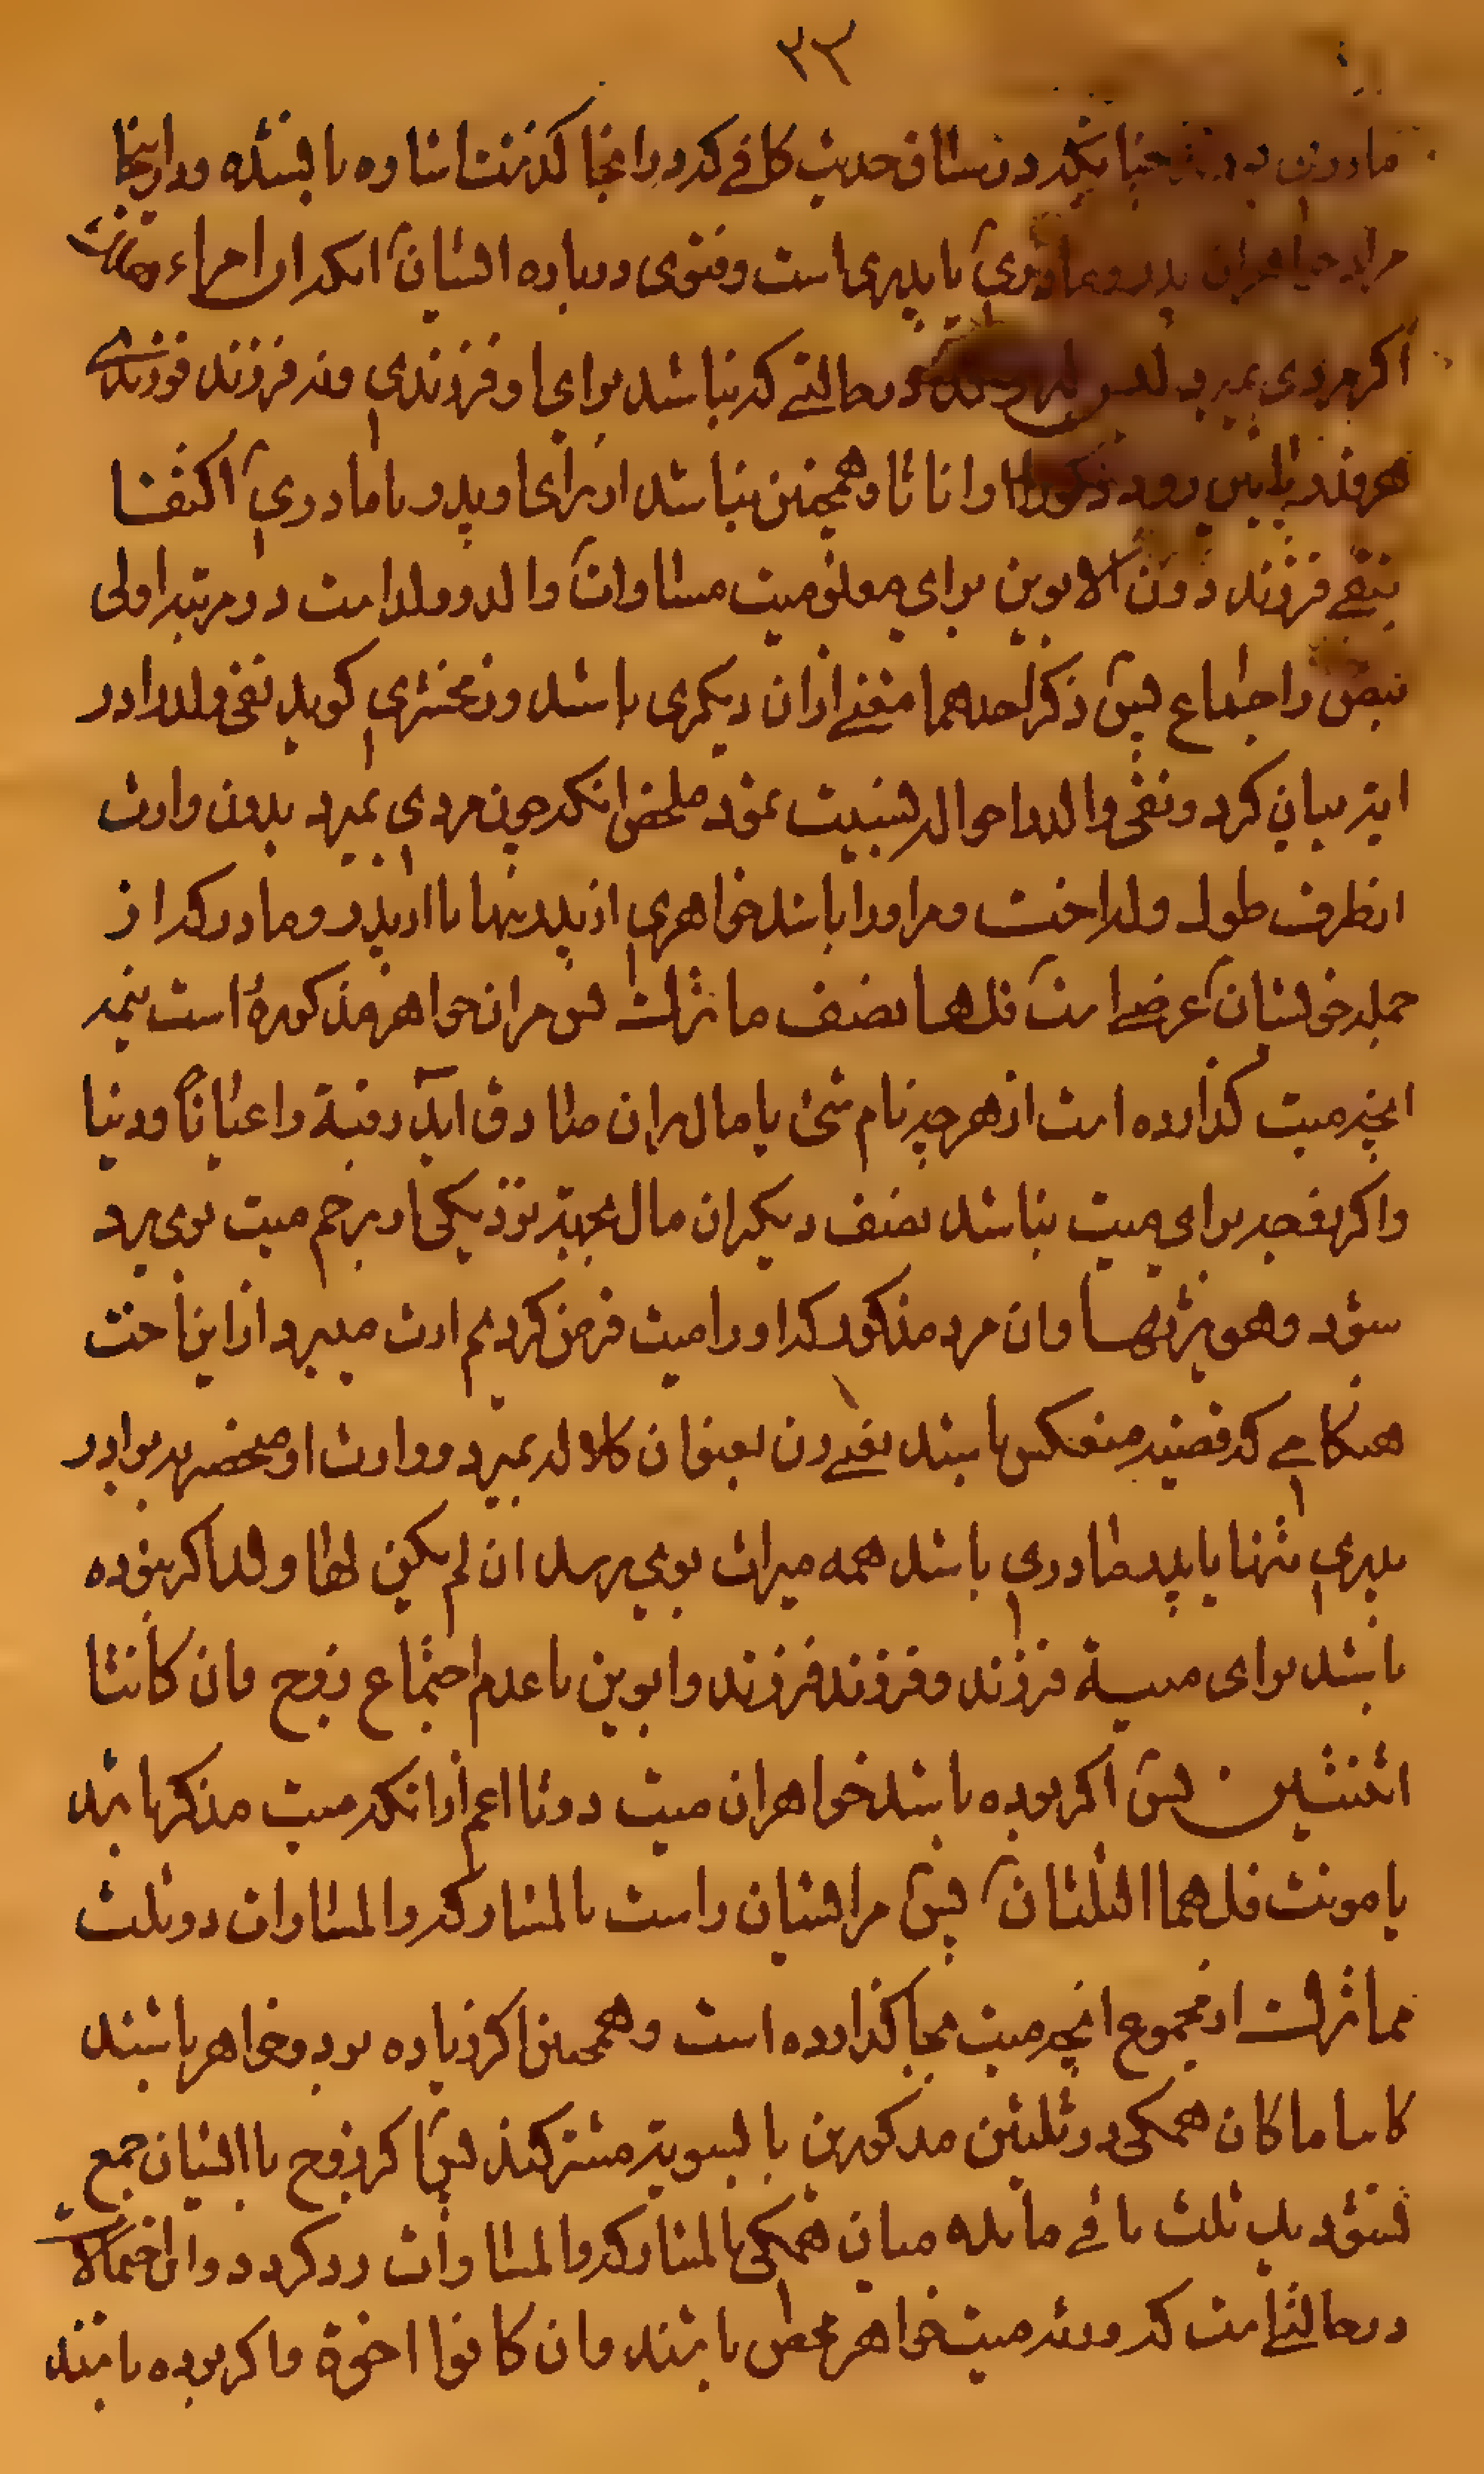 ۳۳
مادری چنانکه در مساق حدیث کافی که در اینجا گذشت اشاره یافته و در اینجا
مراد خواهران پدر و مادری یا پدری است و فتوی درباره ایشان آنکه ان امرء هلک
اگر مردی بمیرد لیس له ولد در حالتی که نباشد برای او فرزندی و نه فرزند فرزندی
هر قدر پایین رود ذکورا و اناثا و همچنین نباشد از برای او پدر یا مادری اکتفا
بنفی فرزند دون الابوین برای معلومیت مساوات والد و ولد است در مرتبه اولی
بنص و اجماع پس ذکر احدهما مغنی از آن دیگری باشد و زمخشری گوید نفی ولد را در
آیه بیان کرد و نفی والد را حواله بسنیت نمود ملخص آنکه چون مردی بمیرد بدون وارث
از طرف طول وله اخت و مر او را باشد خواهری از پدر تنها یا از پدر و مادر که از
جمله خویشان عرضی است فلها نصف ما ترک پس مر آن خواهر مذکوره است نیمه
آنچه میت گذارده است از هر چیز نام شیء یا مال بر آن صادق آید رقبة و اعیانا و دنیا
و اگر زوجه برای میت نباشد نصف دیگر آن مال بجهة نزدیکی او برحم میت بوی رد
شود و هو یرثها و آن مرد مذکور که او را میت فرض کردیم ارث میبرد از این اخت
هنگامی که قضیه منعکس باشد یعنی زن بعنوان کلاله بمیرد و وارث او منحصر به برادر
پدری تنها یا پدر مادری باشد همه میراث بوی برسد ان لم یکن لها ولد اگر نبوده
باشد برای میته فرزند و فرزند فرزند و ابوین با عدم اجتماع زوج فان کانتا
اثنتین پس اگر بوده باشد خواهران میت دو تا اعم از آنکه میت مذکر باشد
یا مونث فلهما الثلثان پس مر ایشان راست بالمشارکه والمساوات دو ثلث
مما ترک از مجموع آنچه میت بجا گذارده است و همچنین اگر زیاده بر دو خواهر باشند
کاینا ما کان همکی در ثلثین مذکورین بالسویه مشترکند پس اگر زوج با ایشان جمع
نشود یک ثلث باقی مانده میان همکی بالمشارکه والمساوات رد گردد و این احتمالات
در حالتی است که ورثه میت خواهر محض باشند و ان کانوا اخوة و اگر بوده باشند